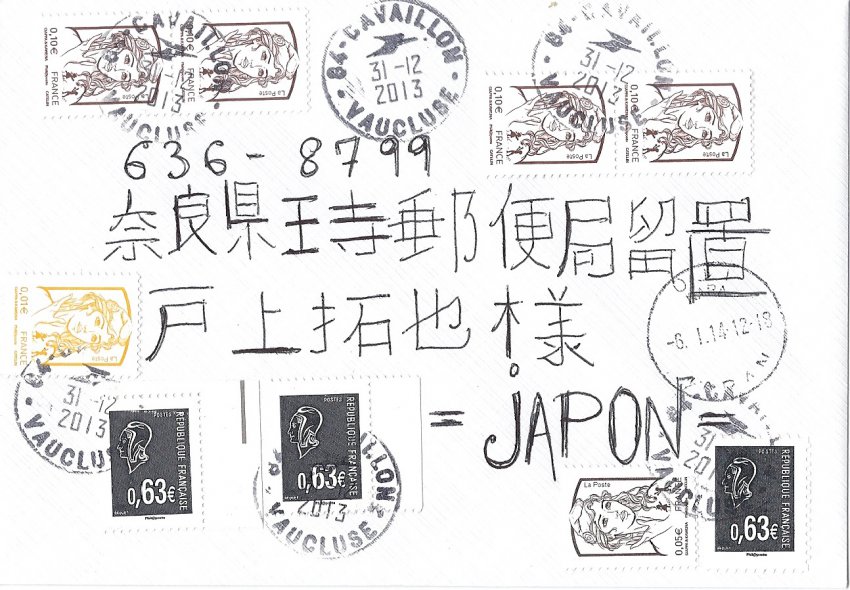 0,10€ FRANCE
0,10€ FRANCE La Poste
84-CAVAILLON
31-12
2013
VAUCLUSE
84-CAVAILLON
31-12
2013
VAUCLUSE
84-CAVAILLON
31-12
VAUCLUSE
0,10€ FRANCE La Poste
0,10€ FRANCE La Poste
636-8799
奈良県王寺郵便局留置
戸上拓也様
=JAPON=
-6.1.14-12-18
JAPAN
0,01€ FRANCE La Poste
31-12
2013
VAUCLUSE
POSTES RÉPUBLIQUE FRANÇAISE
0,63€
POSTES RÉPUBLIQUE FRANÇAISE
0,63€
2013
VAUCLUSE
La Poste
0,05€
RÉPUBLIQUE FRANÇAISE
0,63€